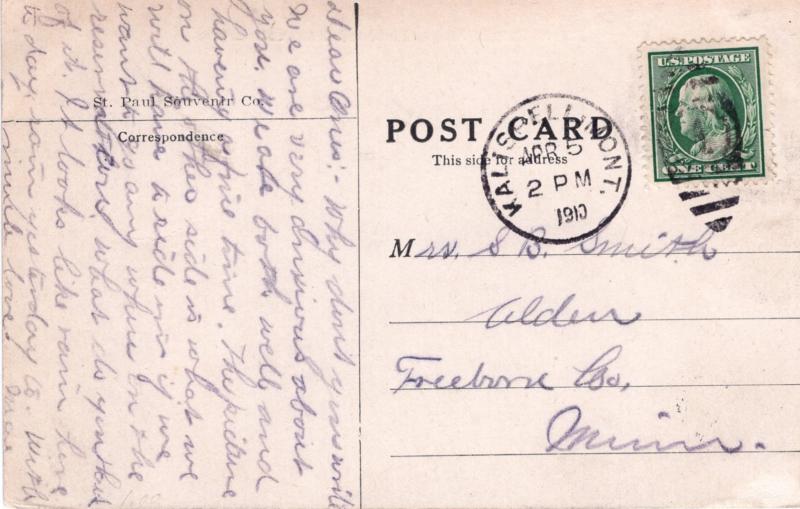 Dear Ones:- Why don't you write
We are very anxious about
you. We are both well and
having a fine time. The picture
on the other side is what we
will have to ride in if we
want to go any where on the
reservation. what do you think
of it. It looks like rain here
to day, rain yesterday to. With
much love.
St. Paul Souvenir Co.
Correspondence
POST CARD
This side for address
KALISPELL, MONT.
APR 5
2 PM
1910
U.S. POSTAGE
ONE CENT
Mrs. S B. Smith
Alden
Freeborn Co,
Minn.